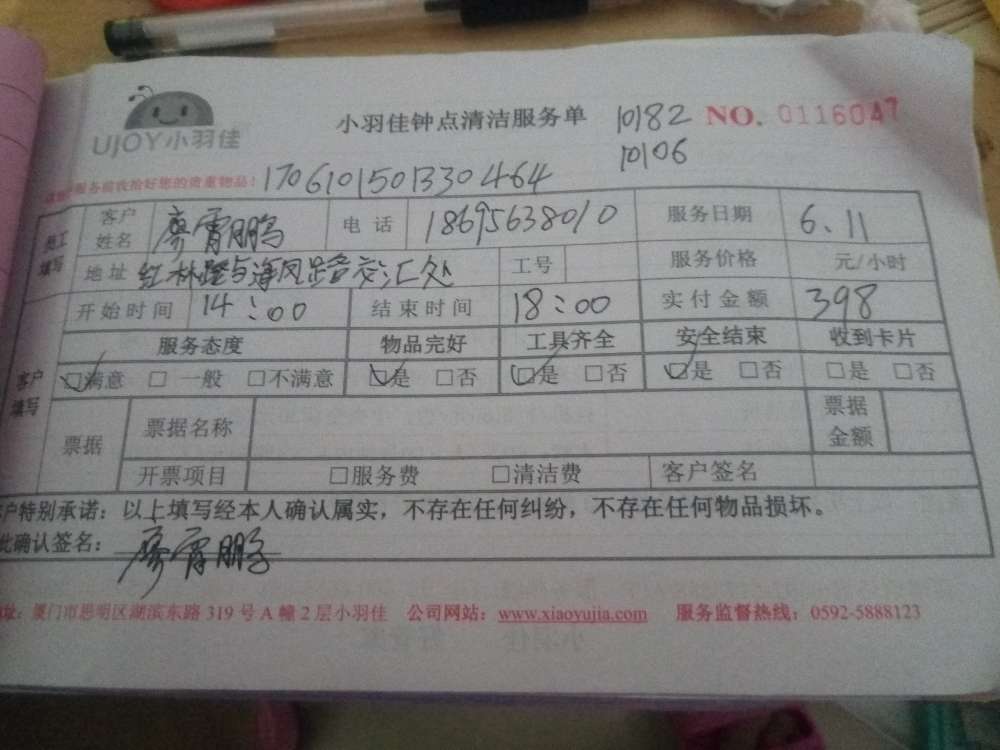 UJOY小羽佳
小羽佳钟点清洁服务单 10182 NO. 0116047
10106
服务前收拾好您的贵重物品! 1706101501330464
员工填写 客户姓名 廖霄鹏 电话 18695638010 服务日期 6.11
地址 红林路与海凤路交汇处 工号 服务价格 元/小时
开始时间 14:00 结束时间 18:00 实付金额 398
客户填写 服务态度 物品完好 工具齐全 安全结束 收到卡片
☑满意 □一般 □不满意 ☑是 □否 ☑是 □否 ☑是 □否 □是 □否
票据 票据名称 票据金额
开票项目 □服务费 □清洁费 客户签名
客户特别承诺:以上填写经本人确认属实,不存在任何纠纷,不存在任何物品损坏。
此确认签名: 廖霄鹏
地址:厦门市思明区湖滨东路 319 号 A 幢 2 层小羽佳 公司网站:www.xiaoyujia.com 服务监督热线:0592-5888123